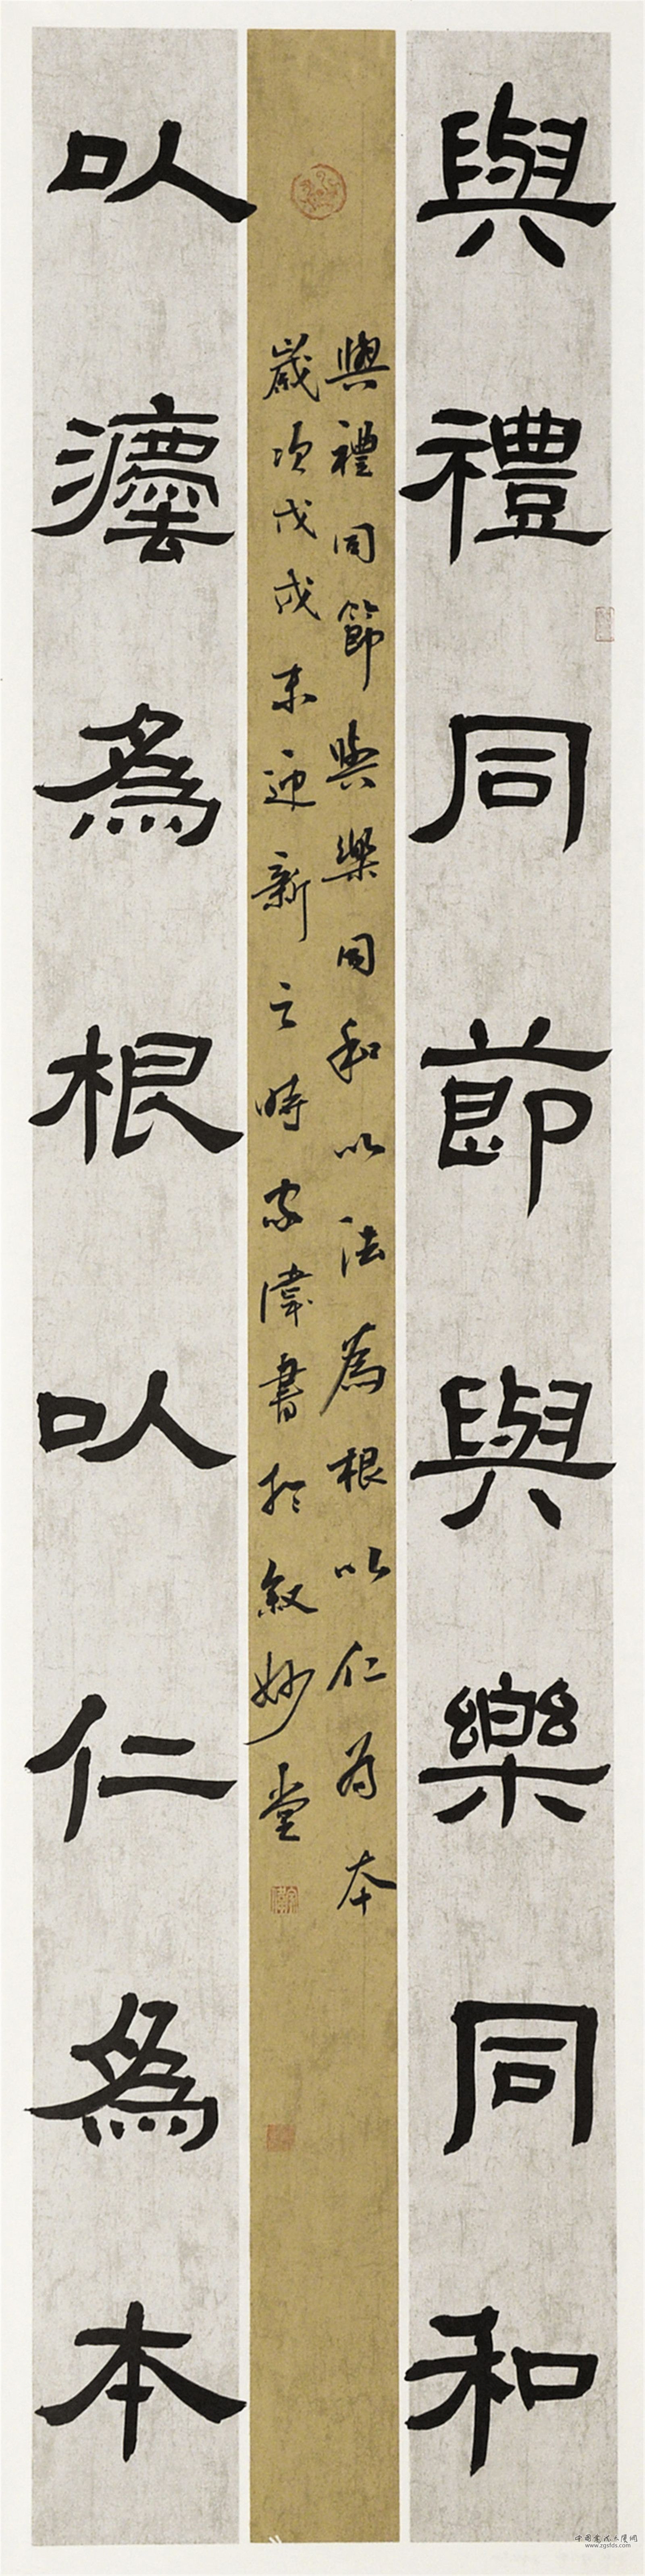 與禮同節與樂同和
以灋為根以仁為本
與禮同節與樂同和以法為根以仁為本
歲次戊戌末迎新之時家偉書於敘妙堂
www.zgsfds.com